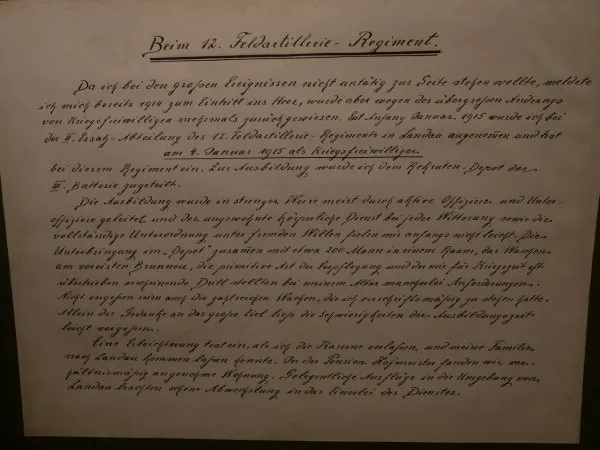 Beim 12. Feldartillerie-Regiment.
Da ich bei den großen Ereignissen nicht untätig zur Seite stehen wollte, meldete
ich mich bereits 1914 zum Eintritt ins Heer, wurde aber wegen des übergroßen Andrangs
von Kriegsfreiwilligen mehrmals zurückgewiesen. Erst Anfang Januar 1915 wurde ich bei
der II. Ersatz-Abteilung des 12. Feldartillerie-Regiments in Landau angenomen und trat
am 4. Januar 1915 als Kriegsfreiwilliger
bei diesem Regiment ein. Zur Ausbildung wurde ich dem Rekruten-Depot der
III. Batterie zugeteilt.
Die Ausbildung wurde in strenger Weise meist durch aktive Offiziere und Unter-
offiziere geleitet, und der ungewohnte körperliche Dienst bei jeder Witterung sowie die
vollständige Unterordnung unter fremden Willen fielen mir anfangs nicht leicht. Die
Unterbringung im „Depot" zusamen mit etwa 200 Mann in einem Raum, das Waschen
am vereisten Brunnen, die primitive Art der Verpflegung und der mir für Kriegszeit oft
übertrieben erscheinende Drill stellten bei meinem Alter mancherlei Anforderungen.
Nicht vergeßen seien auch die zahlreichen Wachen, die ich vorschriftsmäßig zu stehen hatte.
Allein der Gedanke an das große Ziel ließ die Schwierigkeiten der Ausbildungszeit
leicht vergeßen.
Eine Erleichterung trat ein, als ich die Kaserne verlaßen und meine Familie
nach Landau kommen laßen konnte. In der Pension Hofmeister fanden wir ver-
hältnismäßig angenehme Wohnung. Gelegentliche Ausflüge in die Umgebung von
Landau brachten schöne Abwechslung in das Einerlei des Dienstes.